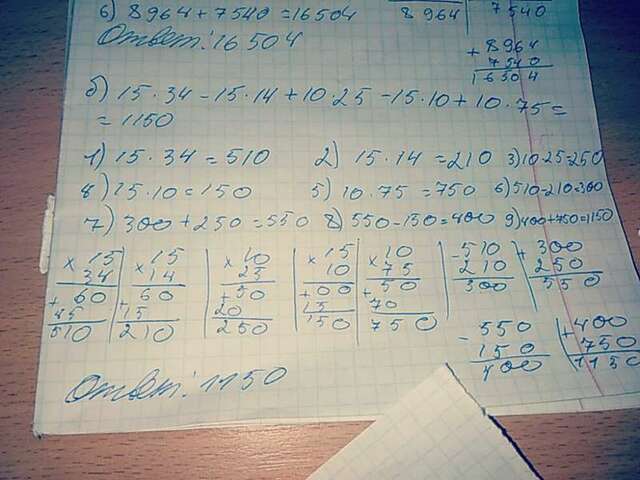 6) 8964+7540=16504
8964
7540
Ответ: 16504
+ 8964
7540
16504
б) 15·34-15·14+10·25-15·10+10·75=
=1150
1) 15·34=510 2) 15·14=210 3) 10·25=250
4) 15·10=150 5) 10·75=750 6) 510-210=300
7) 300+250=550 8) 550-150=400 9) 400+750=1150
× 15 × 15 × 10 × 15 × 10 - 510 + 300
34 14 25 10 75 210 250
+ 60 + 60 + 50 + 00 + 50 300 550
45 15 20 15 70
510 210 250 150 750
- 550 + 400
150 750
400 1150
Ответ: 1150